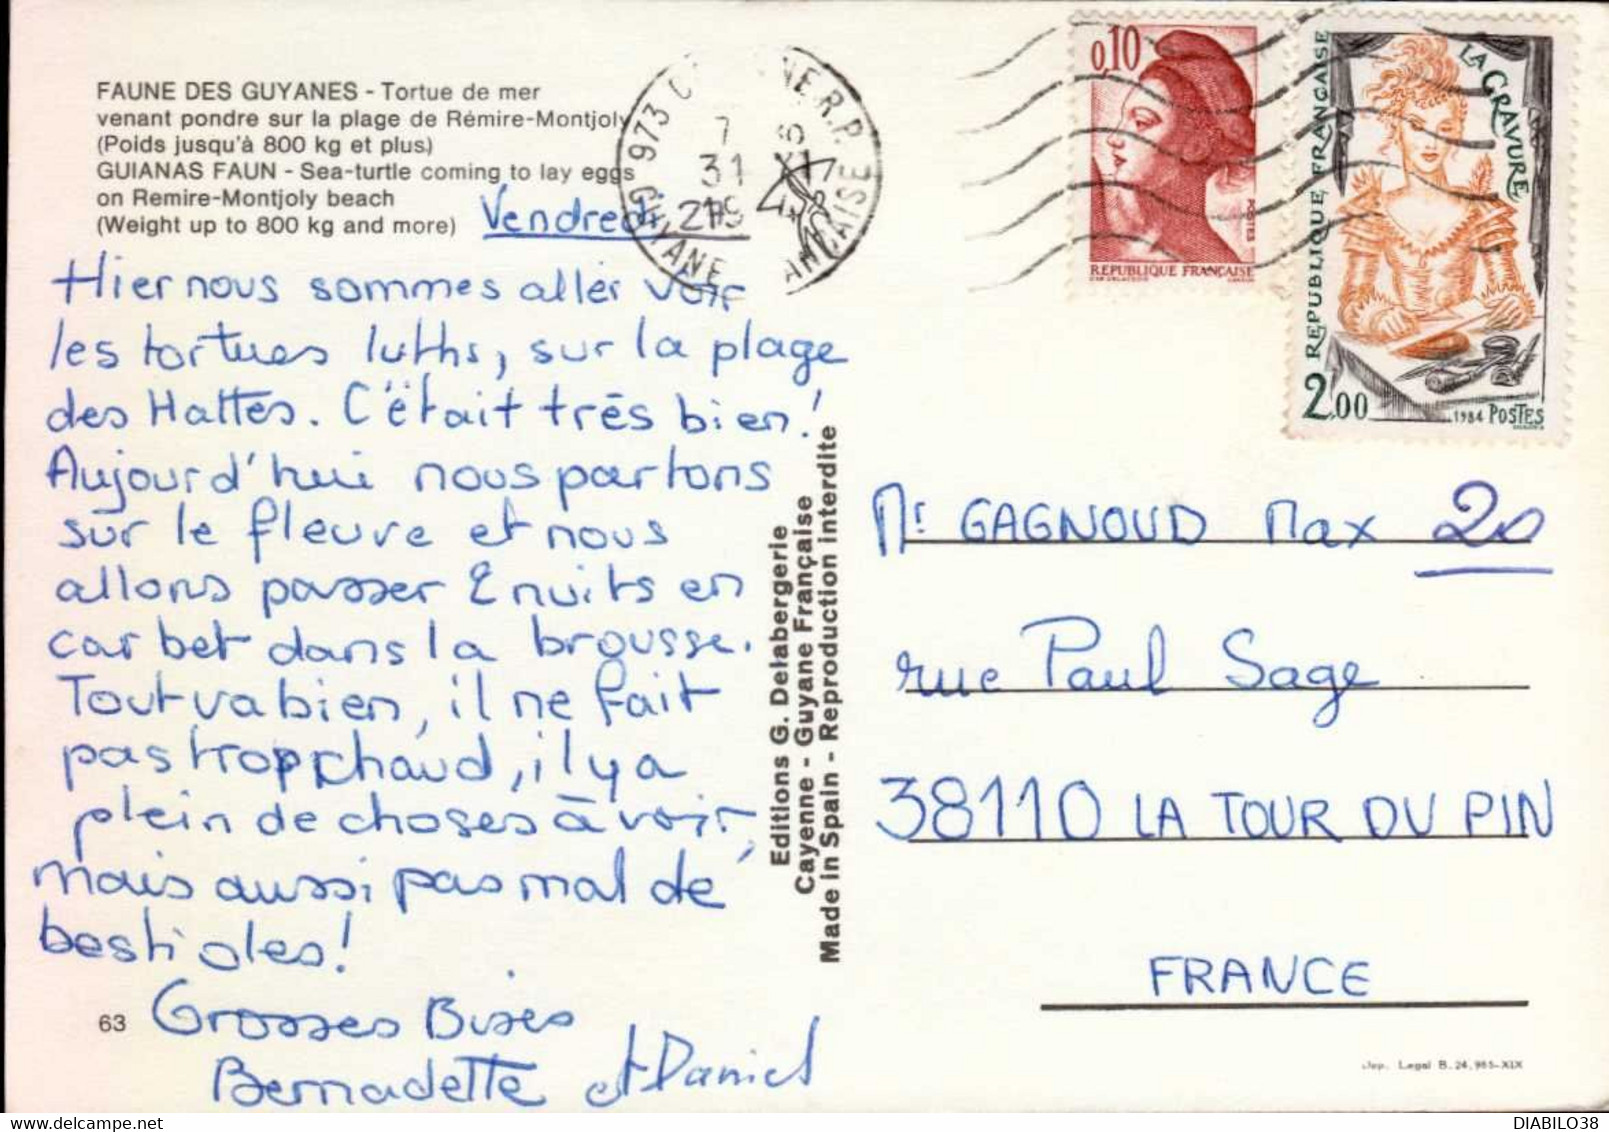 FAUNE DES GUYANES - Tortue de mer
venant pondre sur la plage de Rémire-Montjoly
(Poids jusqu'à 800 kg et plus)
GUIANAS FAUN - Sea-turtle coming to lay eggs
on Remire-Montjoly beach
(Weight up to 800 kg and more)
Vendredi
Hier nous sommes allés voir
les tortues luths, sur la plage
des Hattes. C'était très bien!
Aujourd'hui nous partons
sur le fleuve et nous
allons passer 2 nuits en
carbet dans la brousse.
Tout va bien, il ne fait
pas trop chaud, il y a
plein de choses à voir,
mais aussi pas mal de
bestioles!
Grosses Bises
Bernadette et Daniel
63
Editions G. Delabergerie
Cayenne - Guyane Française
Made in Spain - Reproduction interdite
973 R.P.
7
31
GUYANE
0,10
POSTES
REPUBLIQUE FRANÇAISE
LA GRAVURE
REPUBLIQUE FRANÇAISE
2,00
1984 POSTES
Mr GAGNOUD Max 20
rue Paul Sage
38110 LA TOUR DU PIN
FRANCE
Dep. Legal B. 24,985-XIX
DIABILO38